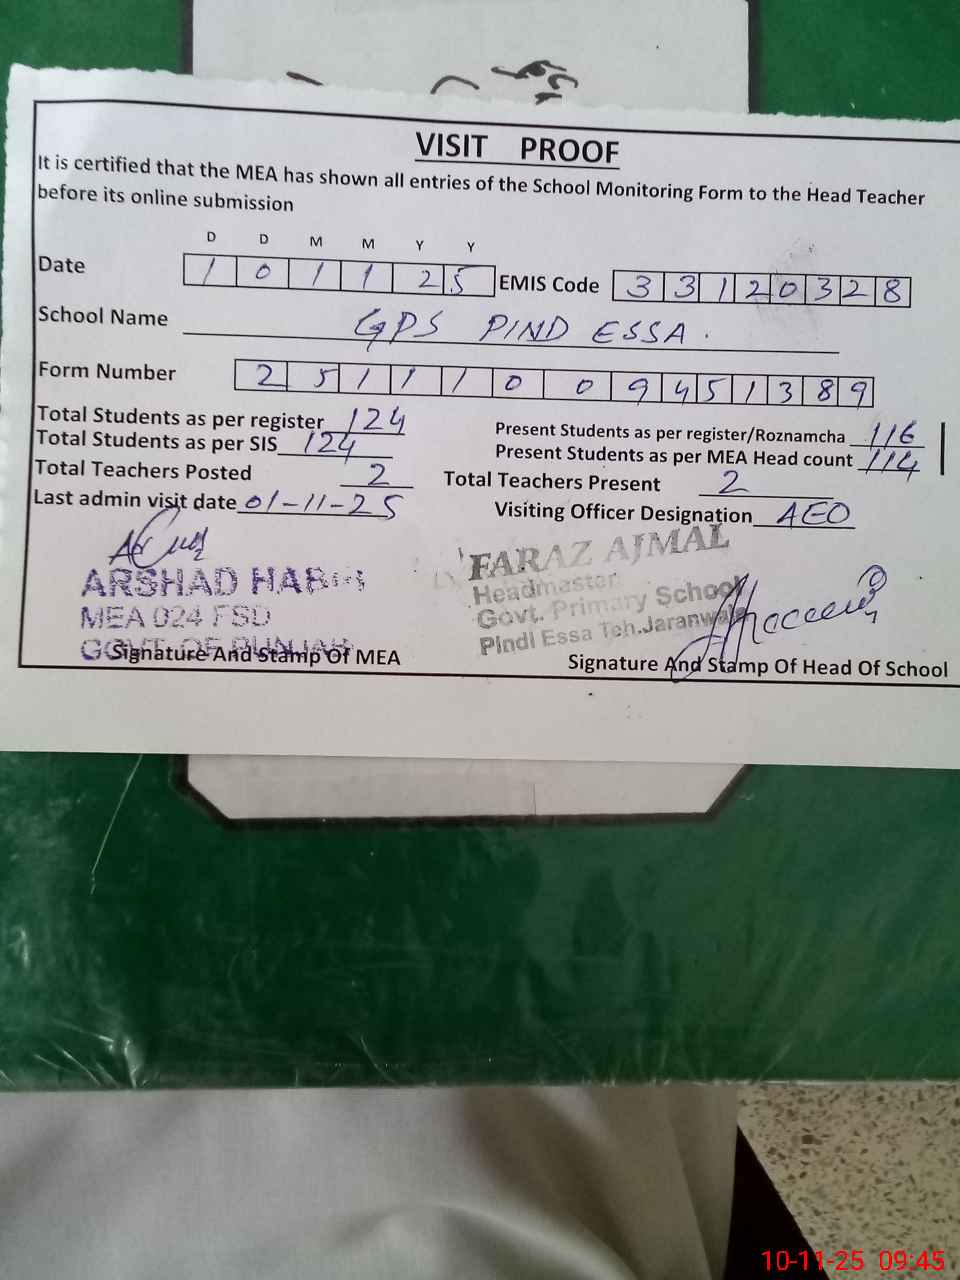 VISIT PROOF
It is certified that the MEA has shown all entries of the School Monitoring Form to the Head Teacher
before its online submission
D D M M Y Y
Date 1 0 1 1 2 5 EMIS Code 3 3 1 2 0 3 2 8
School Name GPS PIND ESSA.
Form Number 2 5 1 1 1 0 0 9 4 5 1 3 8 9
Total Students as per register 124 Present Students as per register/Roznamcha 116
Total Students as per SIS 124 Present Students as per MEA Head count 114
Total Teachers Posted 2 Total Teachers Present 2
Last admin visit date 01-11-25 Visiting Officer Designation AEO
ARSHAD
MEA 024 FSD
GOVT. OF PUNJAB
Signature And Stamp Of MEA
FARAZ AJMAL
Headmaster
Govt. Primary School
Pindi Essa Teh.Jaranwala
Signature And Stamp Of Head Of School
10-11-25 09:45